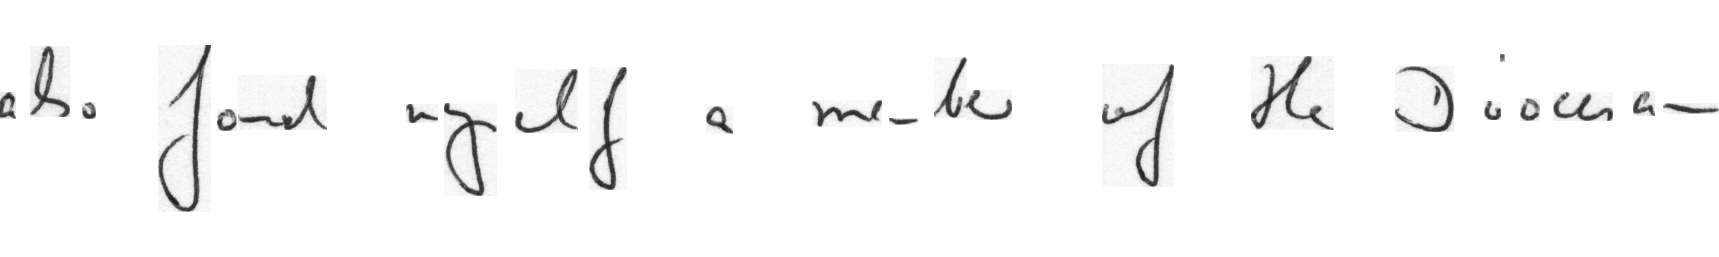 also found myself a member of the Diocesan